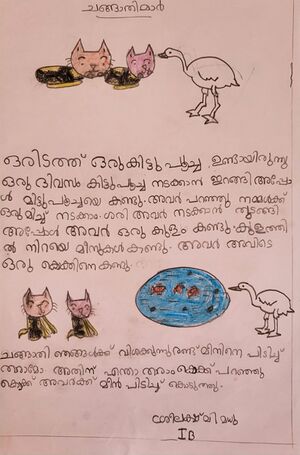 ചങ്ങാതിമാർ
ഒരിടത്ത് ഒരു കിട്ടു പൂച്ച ഉണ്ടായിരുന്നു
ഒരു ദിവസം കിട്ടുപൂച്ച നടക്കാൻ ഇറങ്ങി അപ്പോ
ൾ മിട്ടുപൂച്ചയെ കണ്ടു. അവർ പറഞ്ഞു നമ്മൾക്ക്
ഒരുമിച്ച് നടക്കാം. ശരി അവർ നടക്കാൻ തുടങ്ങി
അപ്പോൾ അവർ ഒരു കുളം കണ്ടു. കുളത്തി
ൽ നിറയെ മീനുകൾ കണ്ടു. അവർ അവിടെ
ഒരു കൊക്കിനെ കണ്ടു.
ചങ്ങാതി ഞങ്ങൾക്ക് വിശക്കുന്നു രണ്ട് മീനിനെ പിടിച്ച്
തരാമോ അതിന് എന്താ തരാം കൊക്ക് പറഞ്ഞു
കൊക്ക് അവർക്ക് മീൻ പിടിച്ച് കൊടുത്തു.
വി മധു
I B